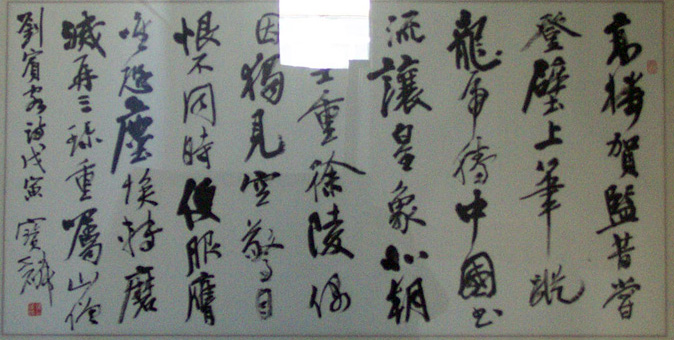 高樓賀監昔嘗
登壁上筆蹤
龍虎騰中國书
流讓皇象北朝
士重徐陵偶
因獨見空驚目
恨不同時便服膺
唯恐塵埃轉磨
滅再三珍重囑山僧
劉賓客詩戊寅